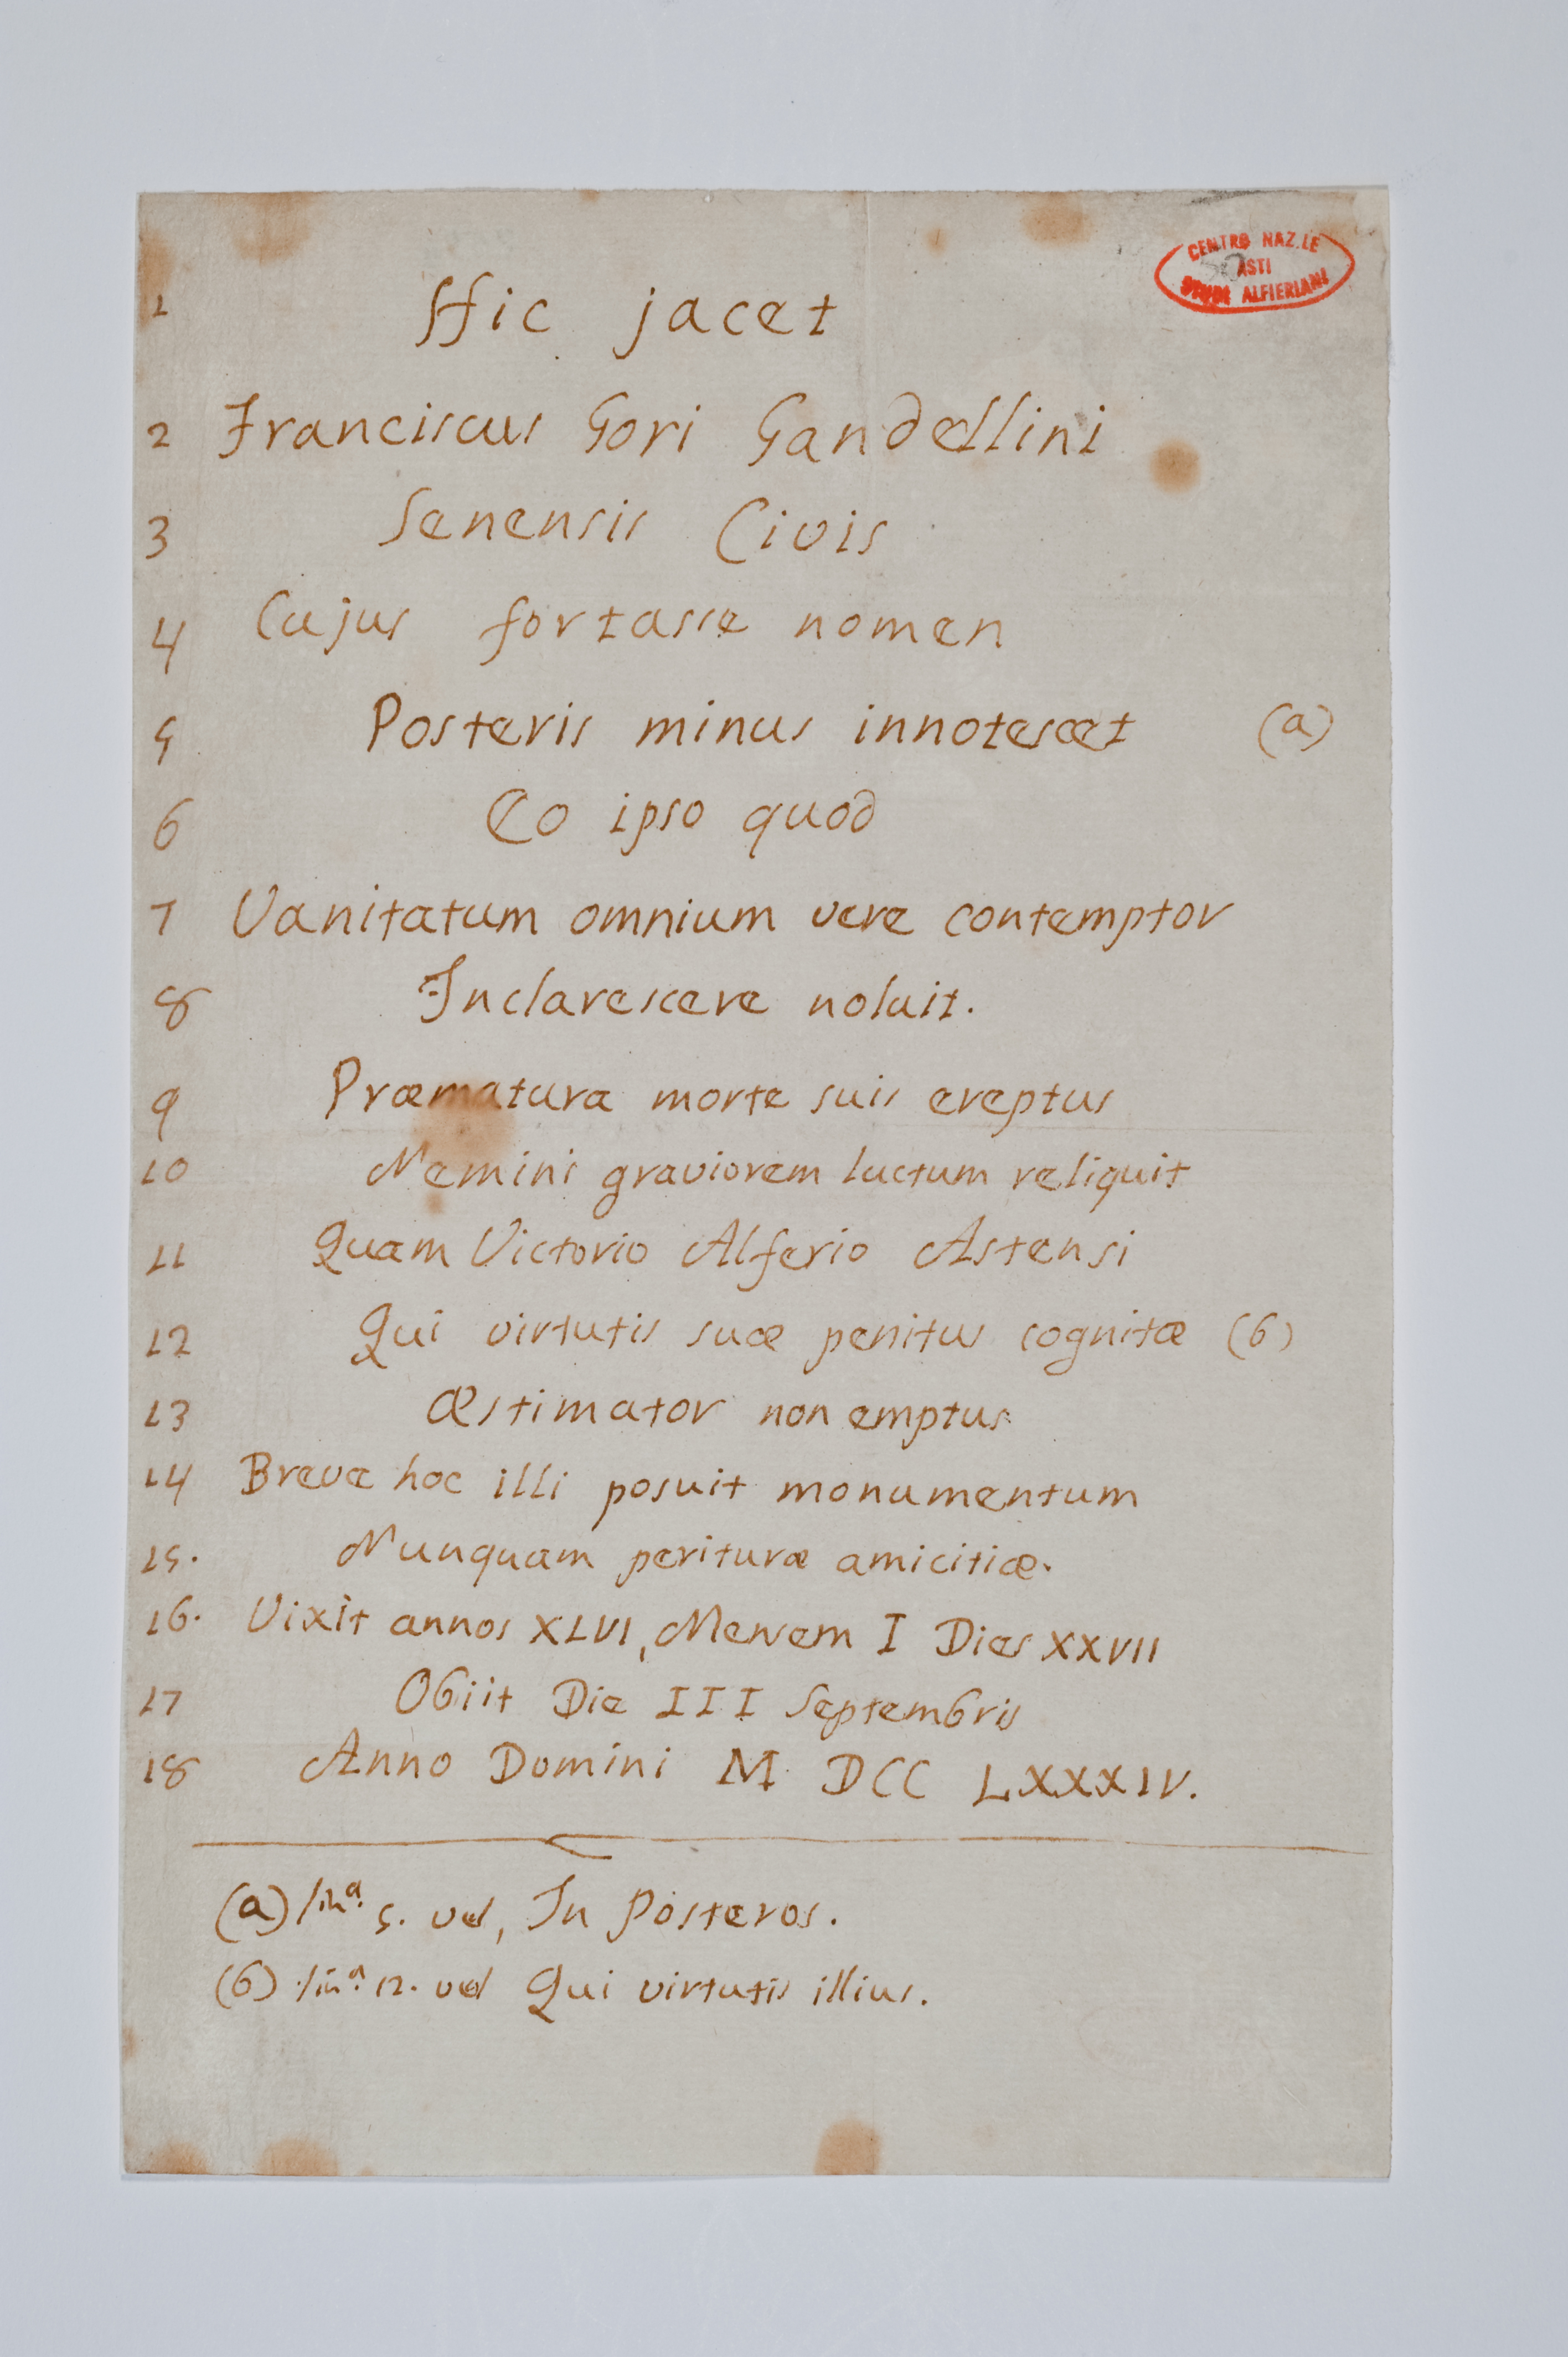 CENTRO NAZ.LE
ASTI
STUDI ALFIERIANI
1 Hic jacet
2 Franciscus Gori Gandellini
3 Senensis Civis
4 Cujus fortasse nomen
5 Posteris minus innotescet (a)
6 Eo ipso quod
7 Vanitatum omnium vere contemptor
8 Inclarescere noluit.
9 Præmatura morte suis ereptus
10 Nemini graviorem luctum reliquit
11 Quam Victorio Alferio Astensi
12 Qui virtutis suæ penitus cognitæ (b)
13 Æstimator non emptus
14 Breve hoc illi posuit monumentum
15. Nunquam perituræ amicitiæ.
16. Vixit annos XLVI, Mensem I Dies XXVII
17 Obiit Die III Septembris
18 Anno Domini M DCC LXXXIV.
(a) linª. 5. vel, In Posteros.
(b) linª. 12. vel Qui virtutis illius.